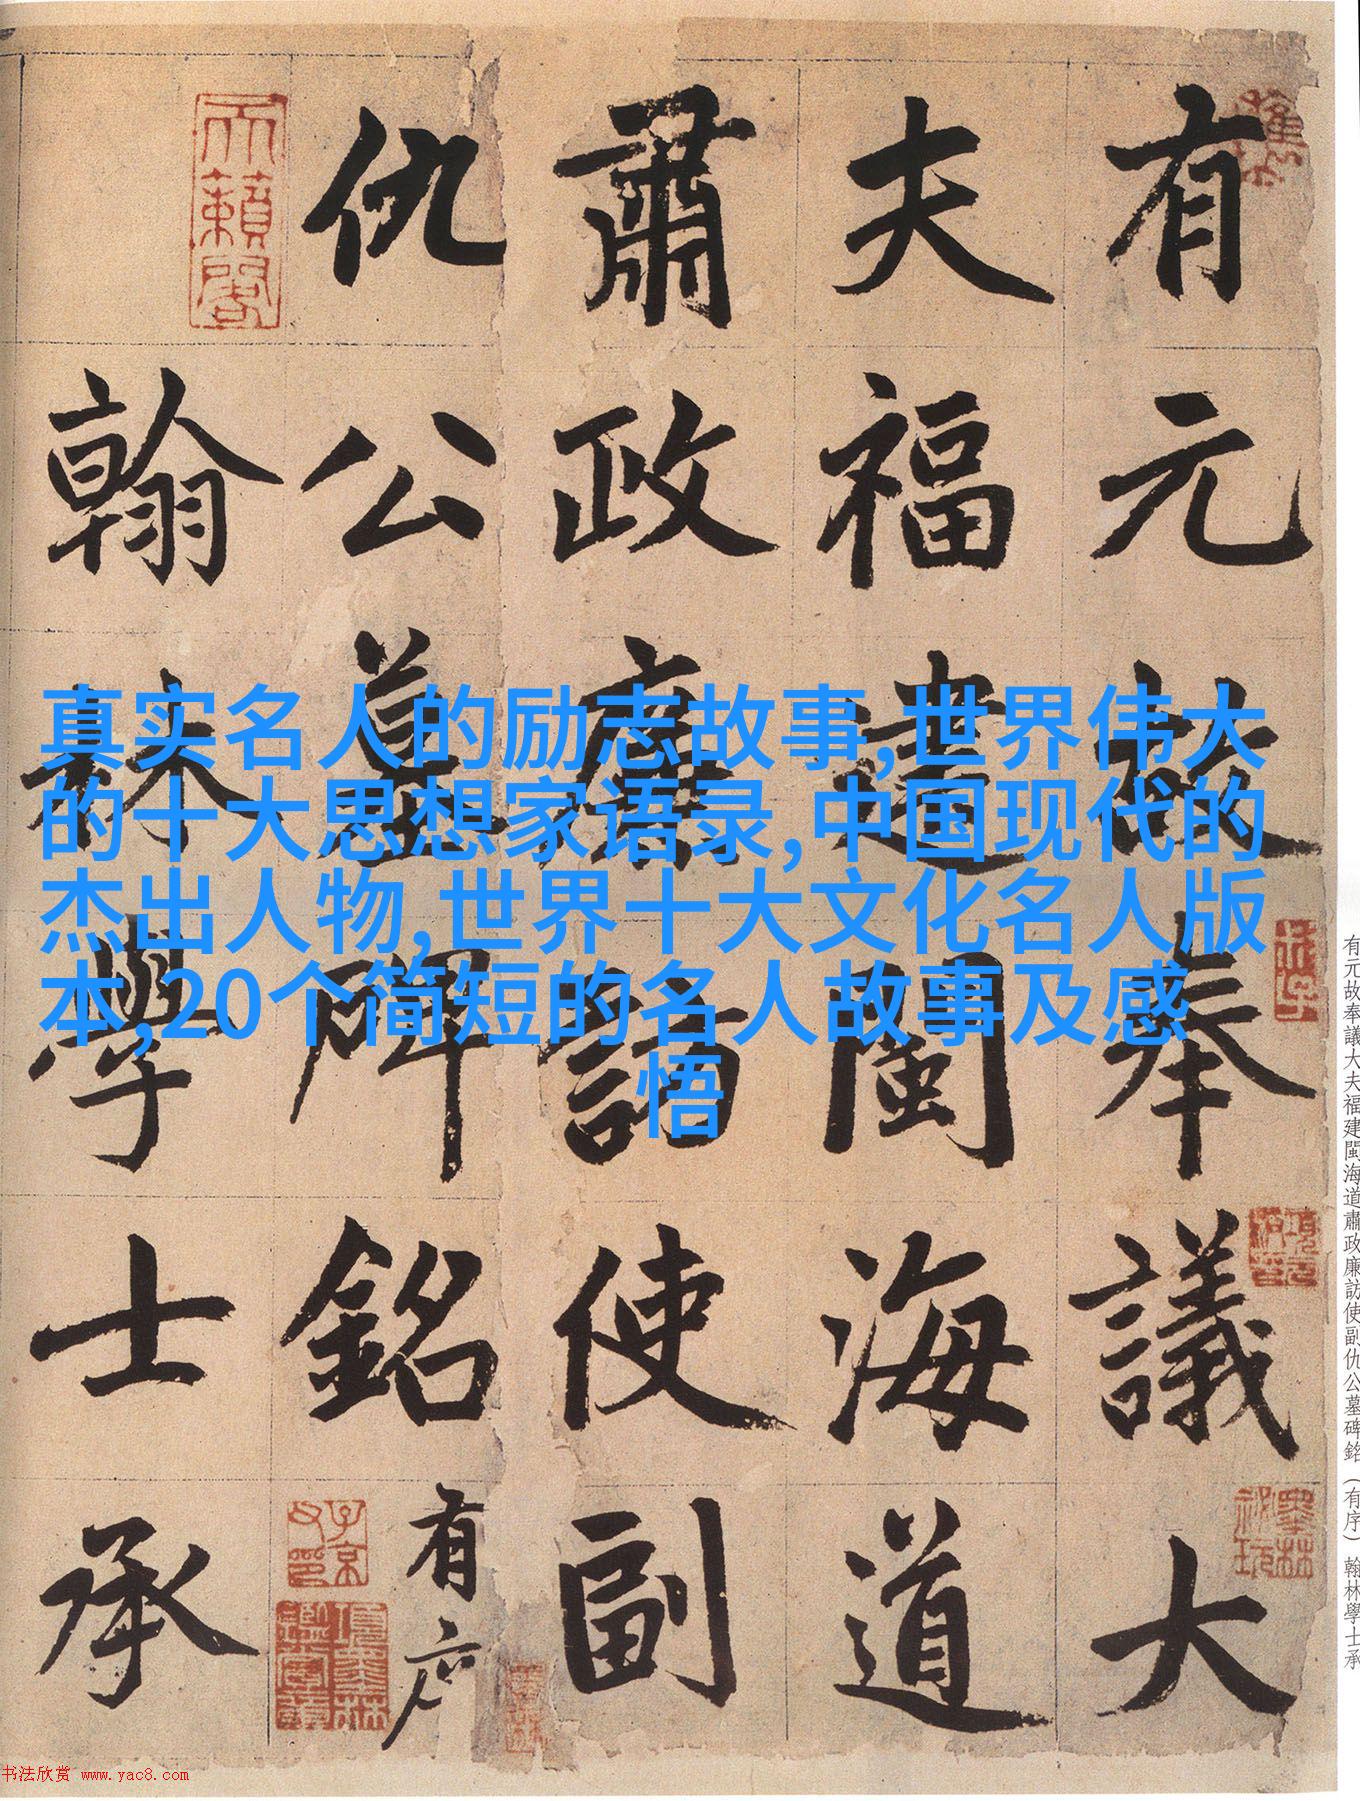 有元故奉議大
夫福建閩海道
肅政廉訪使副
仇公墓碑銘有序
翰林學士承
真实名人的励志故事,世界伟大
的十大思想家语录,中国现代的
杰出人物,世界十大文化名人版
本,20个简短的名人故事及感
悟
天籟閣
子京父印
項墨林鑑賞章
項元汴印
墨林祕玩
有元故奉議大夫福建閩海道肅政廉訪使副仇公墓碑銘（有序）翰林學士承
书法欣赏 www.yac8.com